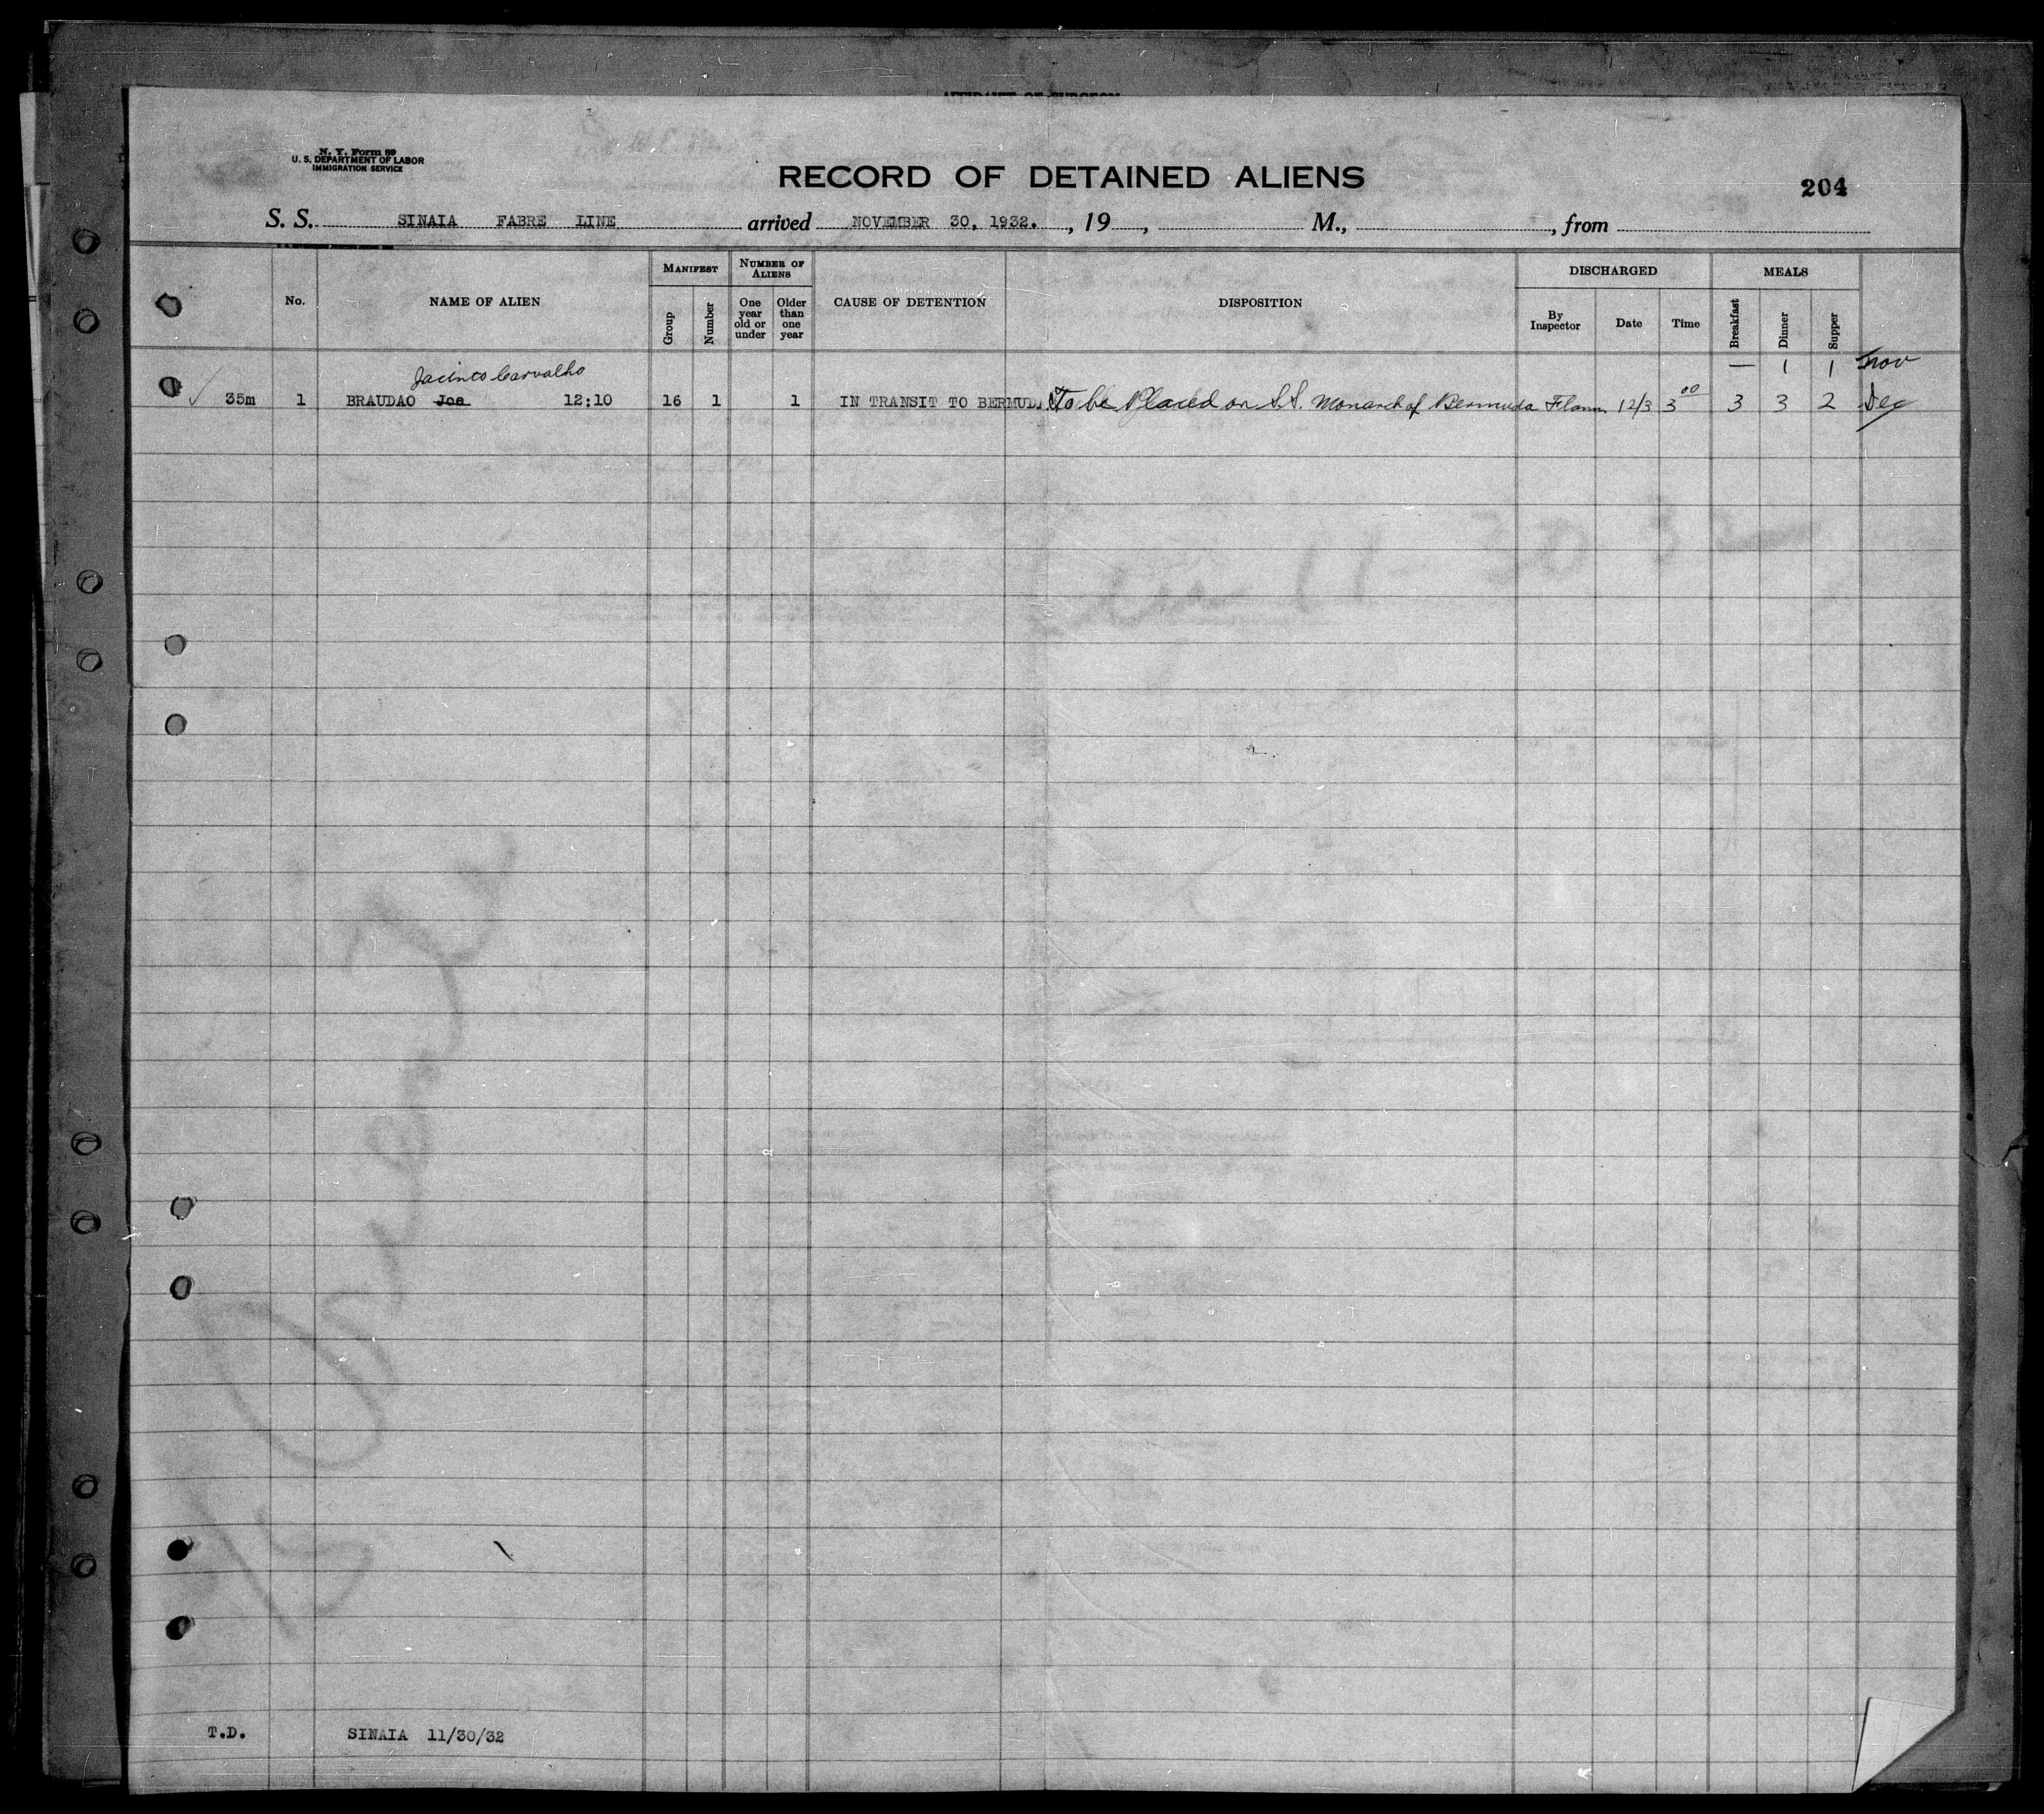 N. Y. Form 89
U. S. DEPARTMENT OF LABOR
IMMIGRATION SERVICE
RECORD OF DETAINED ALIENS
204
S. S. SINAIA FABRE LINE arrived NOVEMBER 30, 1932. , 19 , M., , from
No.
NAME OF ALIEN
MANIFEST
Group
Number
NUMBER OF ALIENS
One year old or under
Older than one year
CAUSE OF DETENTION
DISPOSITION
DISCHARGED
By Inspector
Date
Time
MEALS
Breakfast
Dinner
Supper
Jacinto Carvalho — 1 1 Nov
35m 1 BRAUDAO Joe 12:10 16 1 1 IN TRANSIT TO BERMUDA To be Placed on S.S. Monarch of Bermuda 12/3 3 00 3 3 2 Dec
T.D. SINAIA 11/30/32